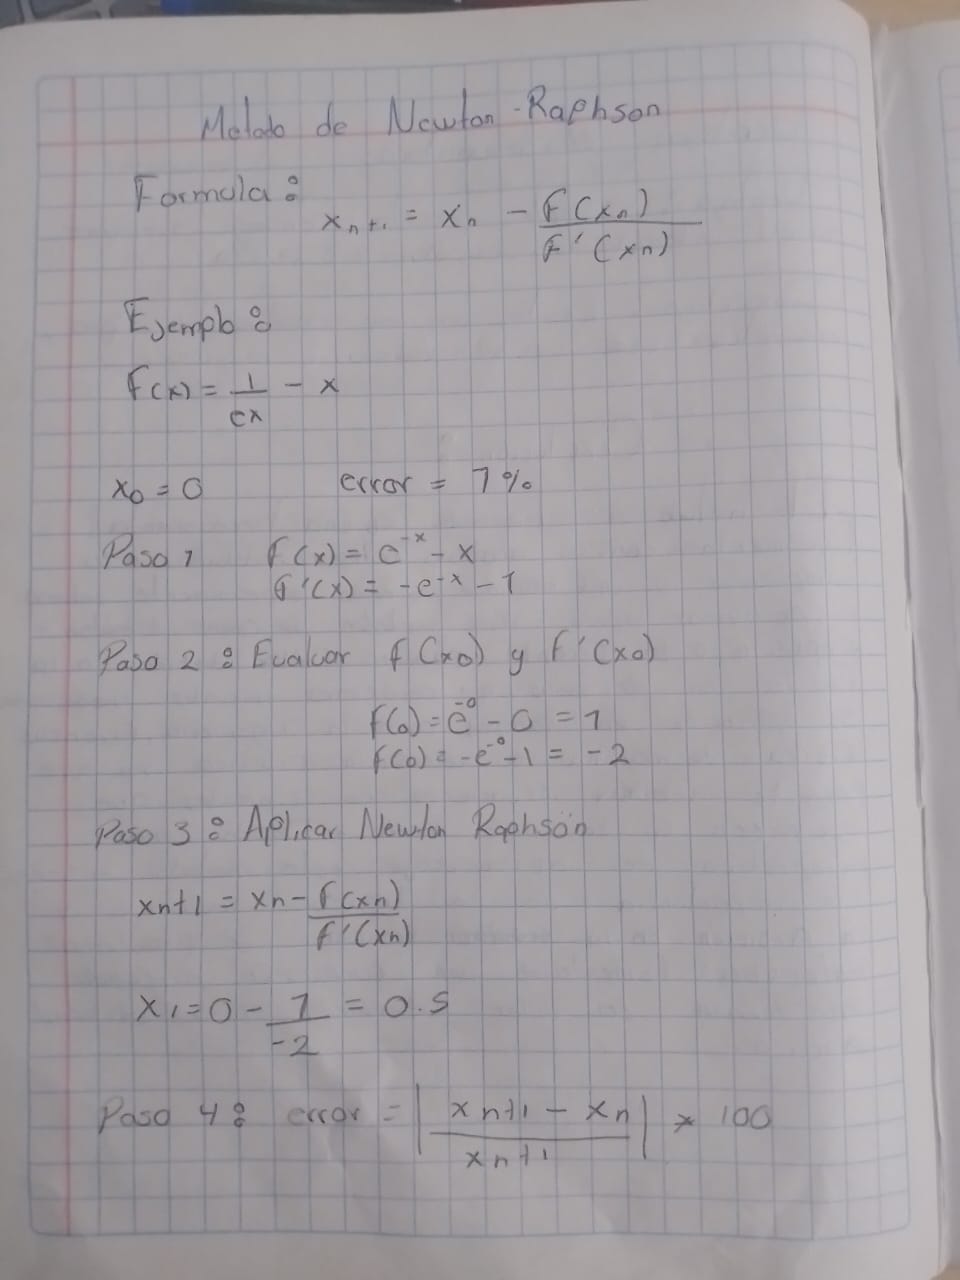 Metodo de Newton-Raphson
Formula:
xn+1 = xn - f(xn)
f'(xn)
Ejemplo:
f(x) = 1 - x
ex
x0 = 0 error = 1%
Paso 1 f(x) = e^-x - x
f'(x) = -e^-x - 1
Paso 2: Evaluar f(x0) y f'(x0)
f(0) = e^-0 - 0 = 1
f(0) = -e^-0 - 1 = -2
Paso 3: Aplicar Newton Raphson
xn+1 = xn - f(xn)
f'(xn)
x1 = 0 - 1 = 0.5
-2
Paso 4: error = | xn+1 - xn | * 100
xn+1